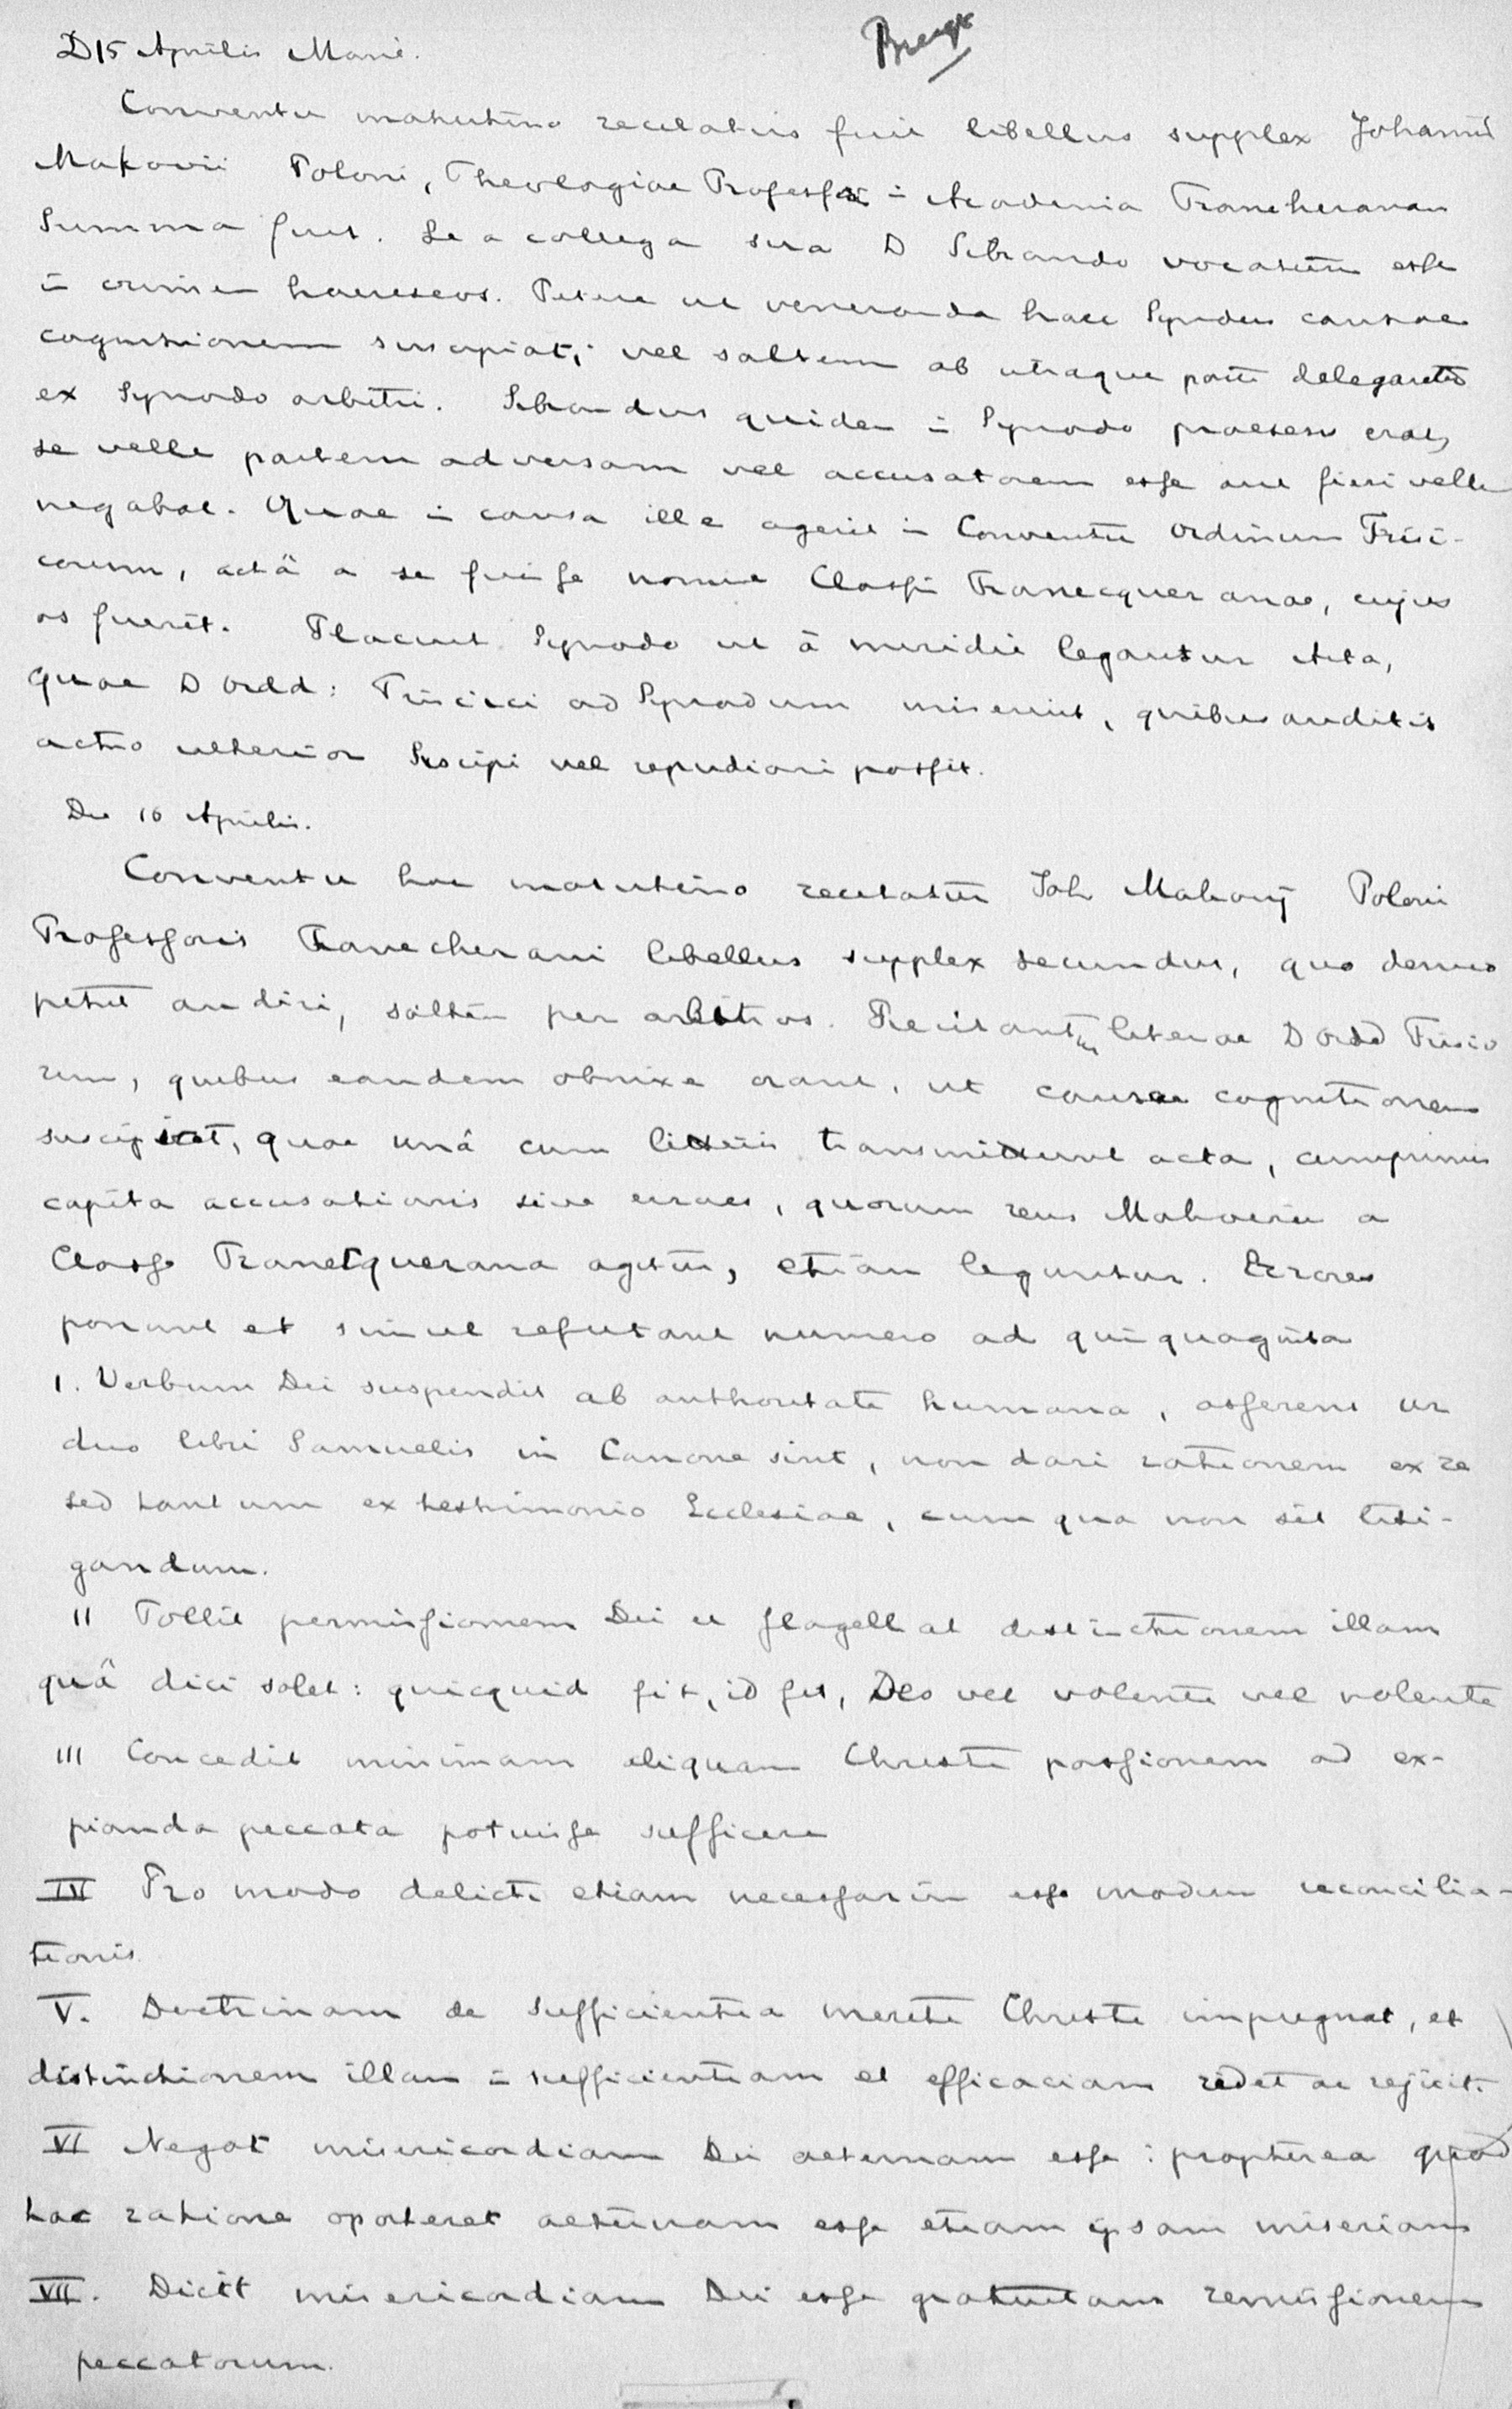 D 15 Aprilis Mane.
Conventu matutino recitatus fuit libellus supplex Johannis
Makovii Poloni, Theologiae Professoris in Academia Franekerana
Summa fuit. Se a collega suo D Sibrando vocatum esse
in crimen haereseos. Petere ut veneranda haec Synodus causae
cognitionem suscipiat, vel saltem ab utraque parte delegarentur
ex Synodo arbitri. Sibrandus quidem in Synodo praesens erat,
se velle partem adversam vel accusatorem esse aut fieri velle
negabat. Quae in causa illa egerit in Conventu Ordinum Frisi-
corum, actâ a se fuisse nomine Classis Franecqueranae, cujus
os fuerit. Placuit Synodo ut à meridie legantur Acta,
quae D Ordd: Frisici ad Synodum miserint, quibus auditis
actio ulterior suscipi vel repudiari possit.
Die 16 Aprilis.
Conventu hoc matutino recitatur Joh Makovij Poloni
Professoris Franecherani libellus supplex secundus, quo denuo
petit audiri, saltem per arbitros. Recitantur literae D Ordd Frisio
rum, quibus eandem obnixe orant, ut causae cognitionem
suscipiat, quae unâ cum literis transmittunt acta, cumprimis
capita accusationis sive errores, quorum reus Makovius a
Classe Franeequerana agitur, etiam leguntur. Errores
ponunt et simul refutant numero ad quinquaginta
1. Verbum Dei suspendit ab authoritate humana, asserens ur
duo libri Samuelis in Canone sint, non dari rationem ex re
sed tantum ex testimonio Ecclesiae, cum qua non sit liti-
gandum.
II Tollit permissionem Dei et flagellat distinctionem illam
quâ dici solet: quicquid fit, id fit, Deo vel volente vel nolente
III Concedit minimam aliquam Christi passionem ad ex-
pianda peccata potuisse sufficere
IV Pro modo delicti etiam necessarium esse modum reconcilia-
tionis
V. Doctrinam de sufficientia meriti Christi impugnat, et
distinctionem illam in sufficientiam et efficaciam ridet ac rejicit.
VI Negat misericordiam Dei aeternam esse: propterea quod
hac ratione oporteret aeternam esse etiam ipsam miseriam
VII. Dicit misericordiam Dei esse gratuitam remissionem
peccatorum.